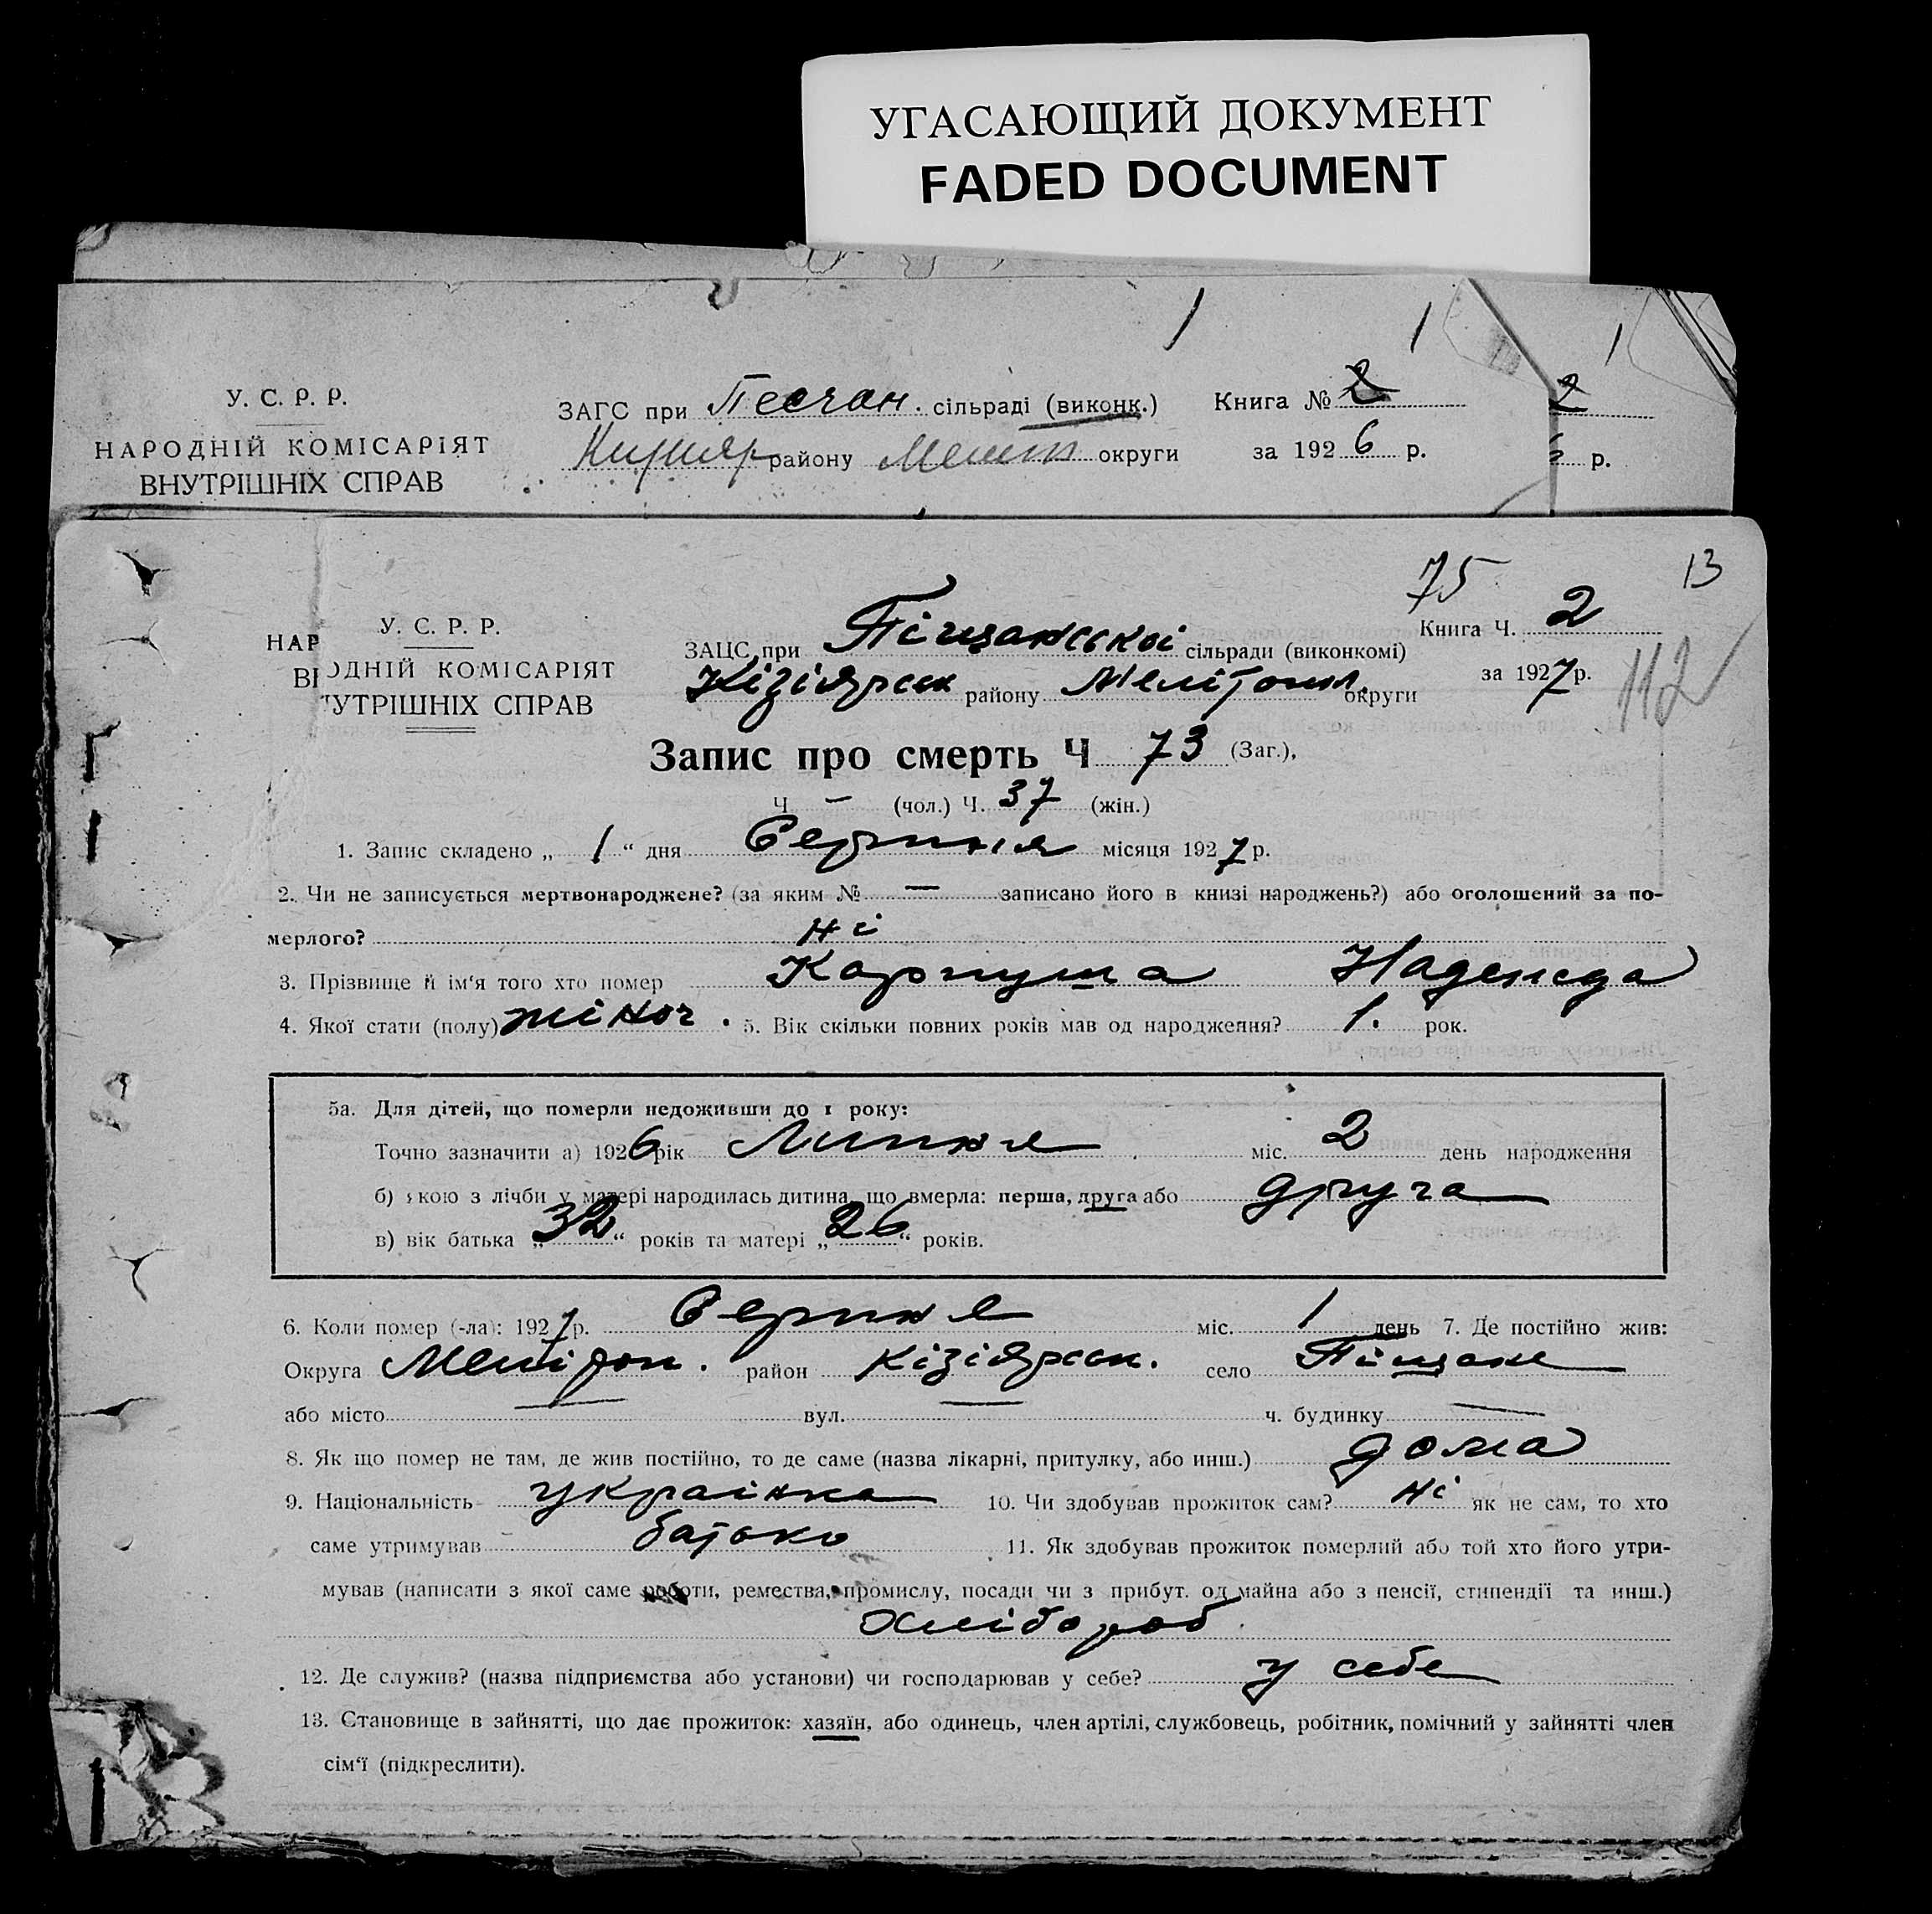 УГАСАЮЩИЙ ДОКУМЕНТ
FADED DOCUMENT
1 1 1
У. С. Р. Р.
НАРОДНІЙ КОМІСАРІЯТ
ВНУТРІШНІХ СПРАВ
ЗАГС при Песчан. сільраді (виконк.) Книга № 2 2
району Меліт округи за 1926 р. р.
75 13
У. С. Р. Р.
НАР
ОДНІЙ КОМІСАРІЯТ
ВІ
УТРІШНІХ СПРАВ
ЗАЦС при Піщанській сільради (виконкомі) Книга Ч. 2
Кізіярськ району Мелітопол. округи за 1927 р. 112
Запис про смерть Ч 73 (Заг.),
Ч — (чол.) Ч. 37 (жін.)
1. Запис складено „ 1 “ дня Серпня місяця 1927 р.
2. Чи не записується мертвонароджене? (за яким № — записано його в книзі народжень?) або оголошений за по-
мерлого? ні
3. Прізвище й ім‘я того хто помер Карпуша Надежда
4. Якої стати (полу) жіноч. 5. Вік скільки повних років мав од народження? 1. рок.
5а. Для дітей, що померли недоживши до 1 року:
Точно зазначити а) 1926 рік Липня міс. 2 день народження
б) якою з лічби у матері народилась дитина, що вмерла: перша, друга або друга
в) вік батька „ 32 “ років та матері „ 26 “ років.
6. Коли помер (-ла): 1927 р. Серпня міс. 1 день 7. Де постійно жив:
Округа Мелітоп. район Кізіярськ. село Піщане
або місто — вул. — ч. будинку —
8. Як що помер не там, де жив постійно, то де саме (назва лікарні, притулку, або инш.) дома
9. Національність українка 10. Чи здобував прожиток сам? ні як не сам, то хто
саме утримував батько 11. Як здобував прожиток померлий або той хто його утри-
мував (написати з якої саме роботи, ремества, промислу, посади чи з прибут. од майна або з пенсії, стипендії та инш.)
Хлібороб
12. Де служив? (назва підприємства або установи) чи господарював у себе? у себе
13. Становище в зайнятті, що дає прожиток: хазяїн, або одинець, член артілі, службовець, робітник, помічний у зайнятті член
сім‘ї (підкреслити).